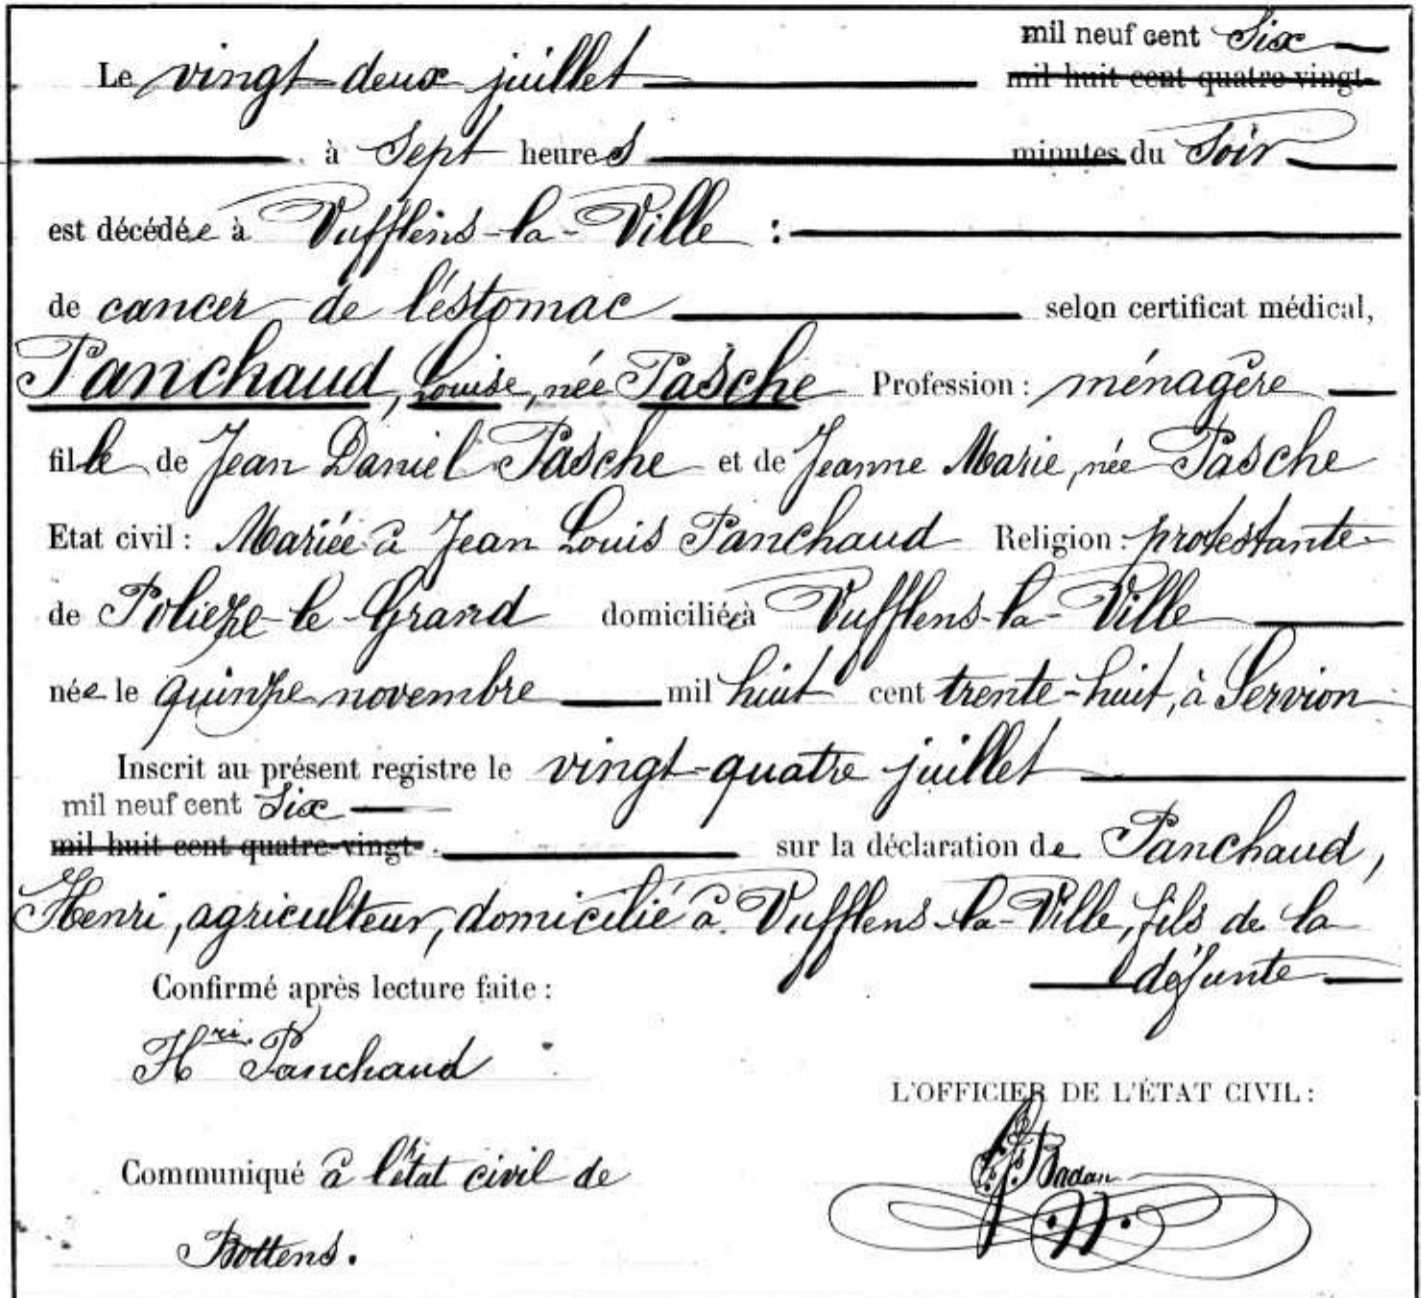 mil neuf cent Six
Le vingt-deux juillet mil huit cent quatre-vingt-
à Sept heures minutes du Soir
est décédée à Vufflens-la-Ville :
de cancer de l'éstomac selon certificat médical,
Panchaud, Louise, née Pasche Profession : ménagère
fille de Jean Daniel Pasche et de Jeanne Marie, née Pasche
Etat civil : Mariée à Jean Louis Panchaud Religion : protestante
de Poliez-le-Grand domiciliée à Vufflens-la-Ville
née le quinze novembre mil huit cent trente-huit, à Servion
Inscrit au présent registre le vingt-quatre juillet
mil neuf cent Six
mil huit cent quatre-vingt- sur la déclaration de Panchaud,
Henri, agriculteur, domicilié à Vufflens-la-Ville, fils de la
défunte
Confirmé après lecture faite :
Hri Panchaud
L'OFFICIER DE L'ÉTAT CIVIL :
Badan
Communiqué à l'état civil de
Bottens.